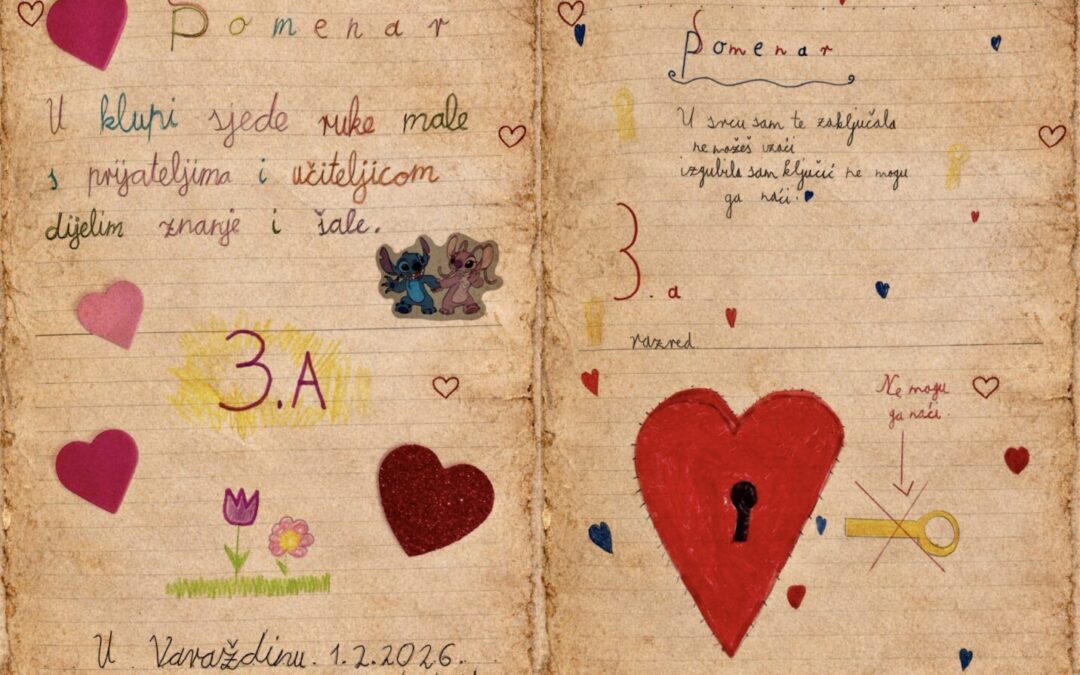 Pomenar
U klupi sjede ruke male
s prijateljima i učiteljicom
dijelim znanje i šale.
3.A
U Varaždinu. 1.2.2026.
Pomenar
U srcu sam te zaključala
ne možeš izaći
izgubila sam ključić ne mogu
ga naći.
3.a
razred
Ne mogu
ga naći.